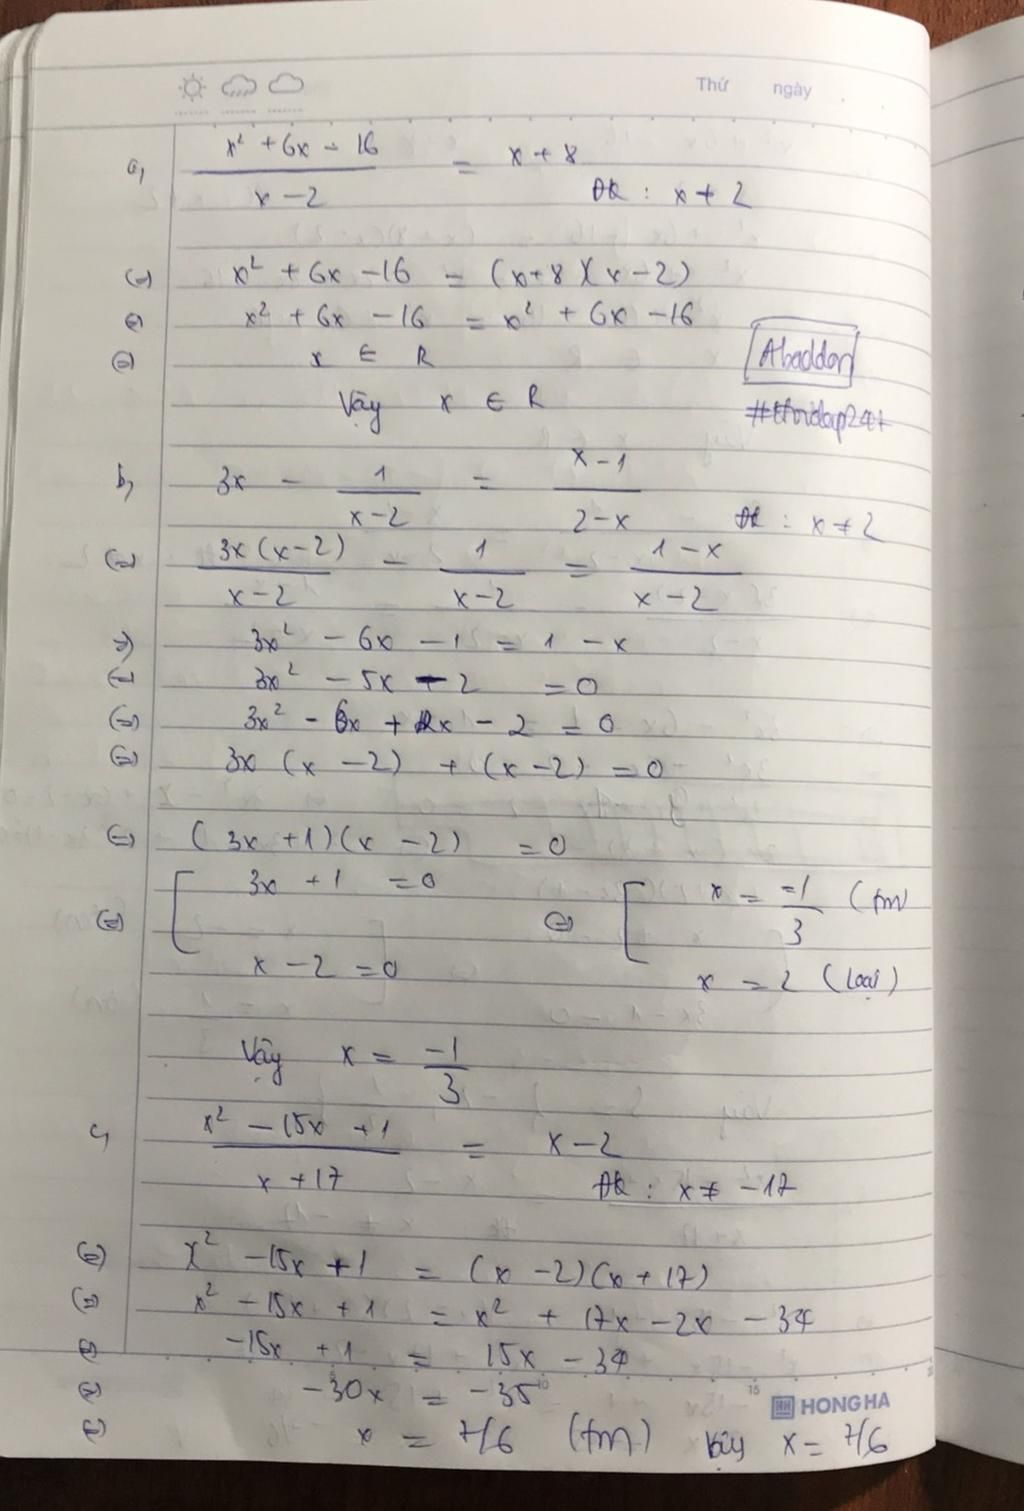 Thứ ngày
a, (x² + 6x - 16)/(x - 2) = x + 8 ĐK : x ≠ 2
(=) x² + 6x - 16 = (x+8)(x-2)
(=) x² + 6x - 16 = x² + 6x - 16
(=) x ∈ R
Vậy x ∈ R
Abaddon
b, 3x - 1/(x-2) = (x-1)/(2-x) ĐK : x ≠ 2
(=) 3x(x-2)/(x-2) - 1/(x-2) = (1-x)/(x-2)
=) 3x² - 6x - 1 = 1 - x
(=) 3x² - 5x - 2 = 0
(=) 3x² - 6x + x - 2 = 0
(=) 3x (x - 2) + (x - 2) = 0
(=) (3x + 1)(x - 2) = 0
(=) [ 3x + 1 = 0 (=) [ x = -1/3 (tm)
x - 2 = 0 x = 2 (loại)
Vậy x = -1/3
c, (x² - 15x + 1)/(x + 17) = x - 2 ĐK : x ≠ -17
(=) x² - 15x + 1 = (x - 2)(x + 17)
(=) x² - 15x + 1 = x² + 17x - 2x - 34
(=) -15x + 1 = 15x - 34
(=) -30x = -35
(=) x = 7/6 (tm) Vậy x = 7/6
HONG HA